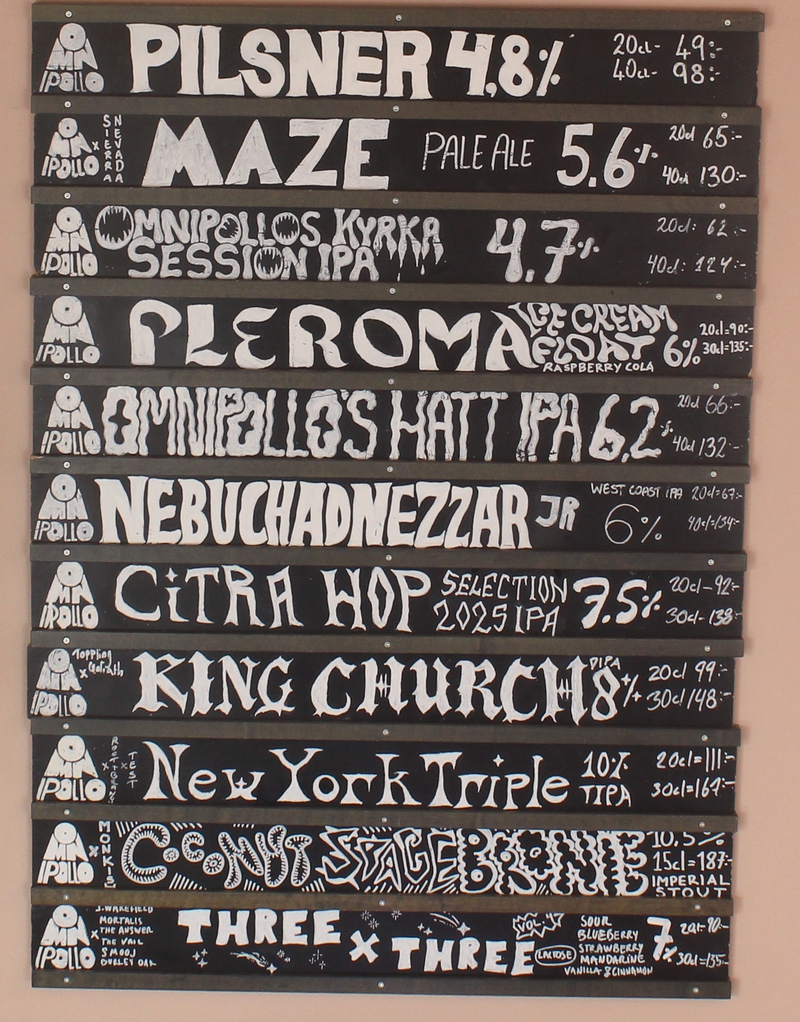 OMNIPOLLO PILSNER 4,8% 20cl- 49:-
40cl- 98:-
OMNIPOLLO x SIERRA NEVADA MAZE PALE ALE 5.6% 20cl 65:-
40cl 130:-
OMNIPOLLO OMNIPOLLOS KYRKA 4.7% 20cl: 62:-
SESSION IPA 40cl: 124:-
OMNIPOLLO PLEROMA ICE CREAM FLOAT 6% 20cl=90:-
RASPBERRY COLA 30cl=135:-
OMNIPOLLO OMNIPOLLO'S HATT IPA 6,2% 20cl 66:-
40cl 132:-
OMNIPOLLO NEBUCHADNEZZAR JR WEST COAST IPA 20cl=67:-
6% 40cl=134:-
OMNIPOLLO CiTRA HOP SELECTION 7.5% 20cl-92:-
2025 IPA 30cl-138:-
OMNIPOLLO x Toppling Goliath KING CHURCH DIPA 8% 20cl 99:-
30cl 148:-
OMNIPOLLO New York Triple 10% 20cl=111:-
TIPA
OMNIPOLLO x MONKIS COCONUT SPACE BROWNIE 10,5%
15cl=187:-
IMPERIAL
STOUT
OMNIPOLLO x J. WAKEFIELD
MORTALIS
THE ANSWER
THE VEIL
SMOOJ
DURLEY OAK
THREE X THREE VOL. LACTOSE
SOUR
BLUEBERRY
STRAWBERRY
MANDARINE
VANILLA & CINNAMON
7% 20cl-90:-
30cl=135:-